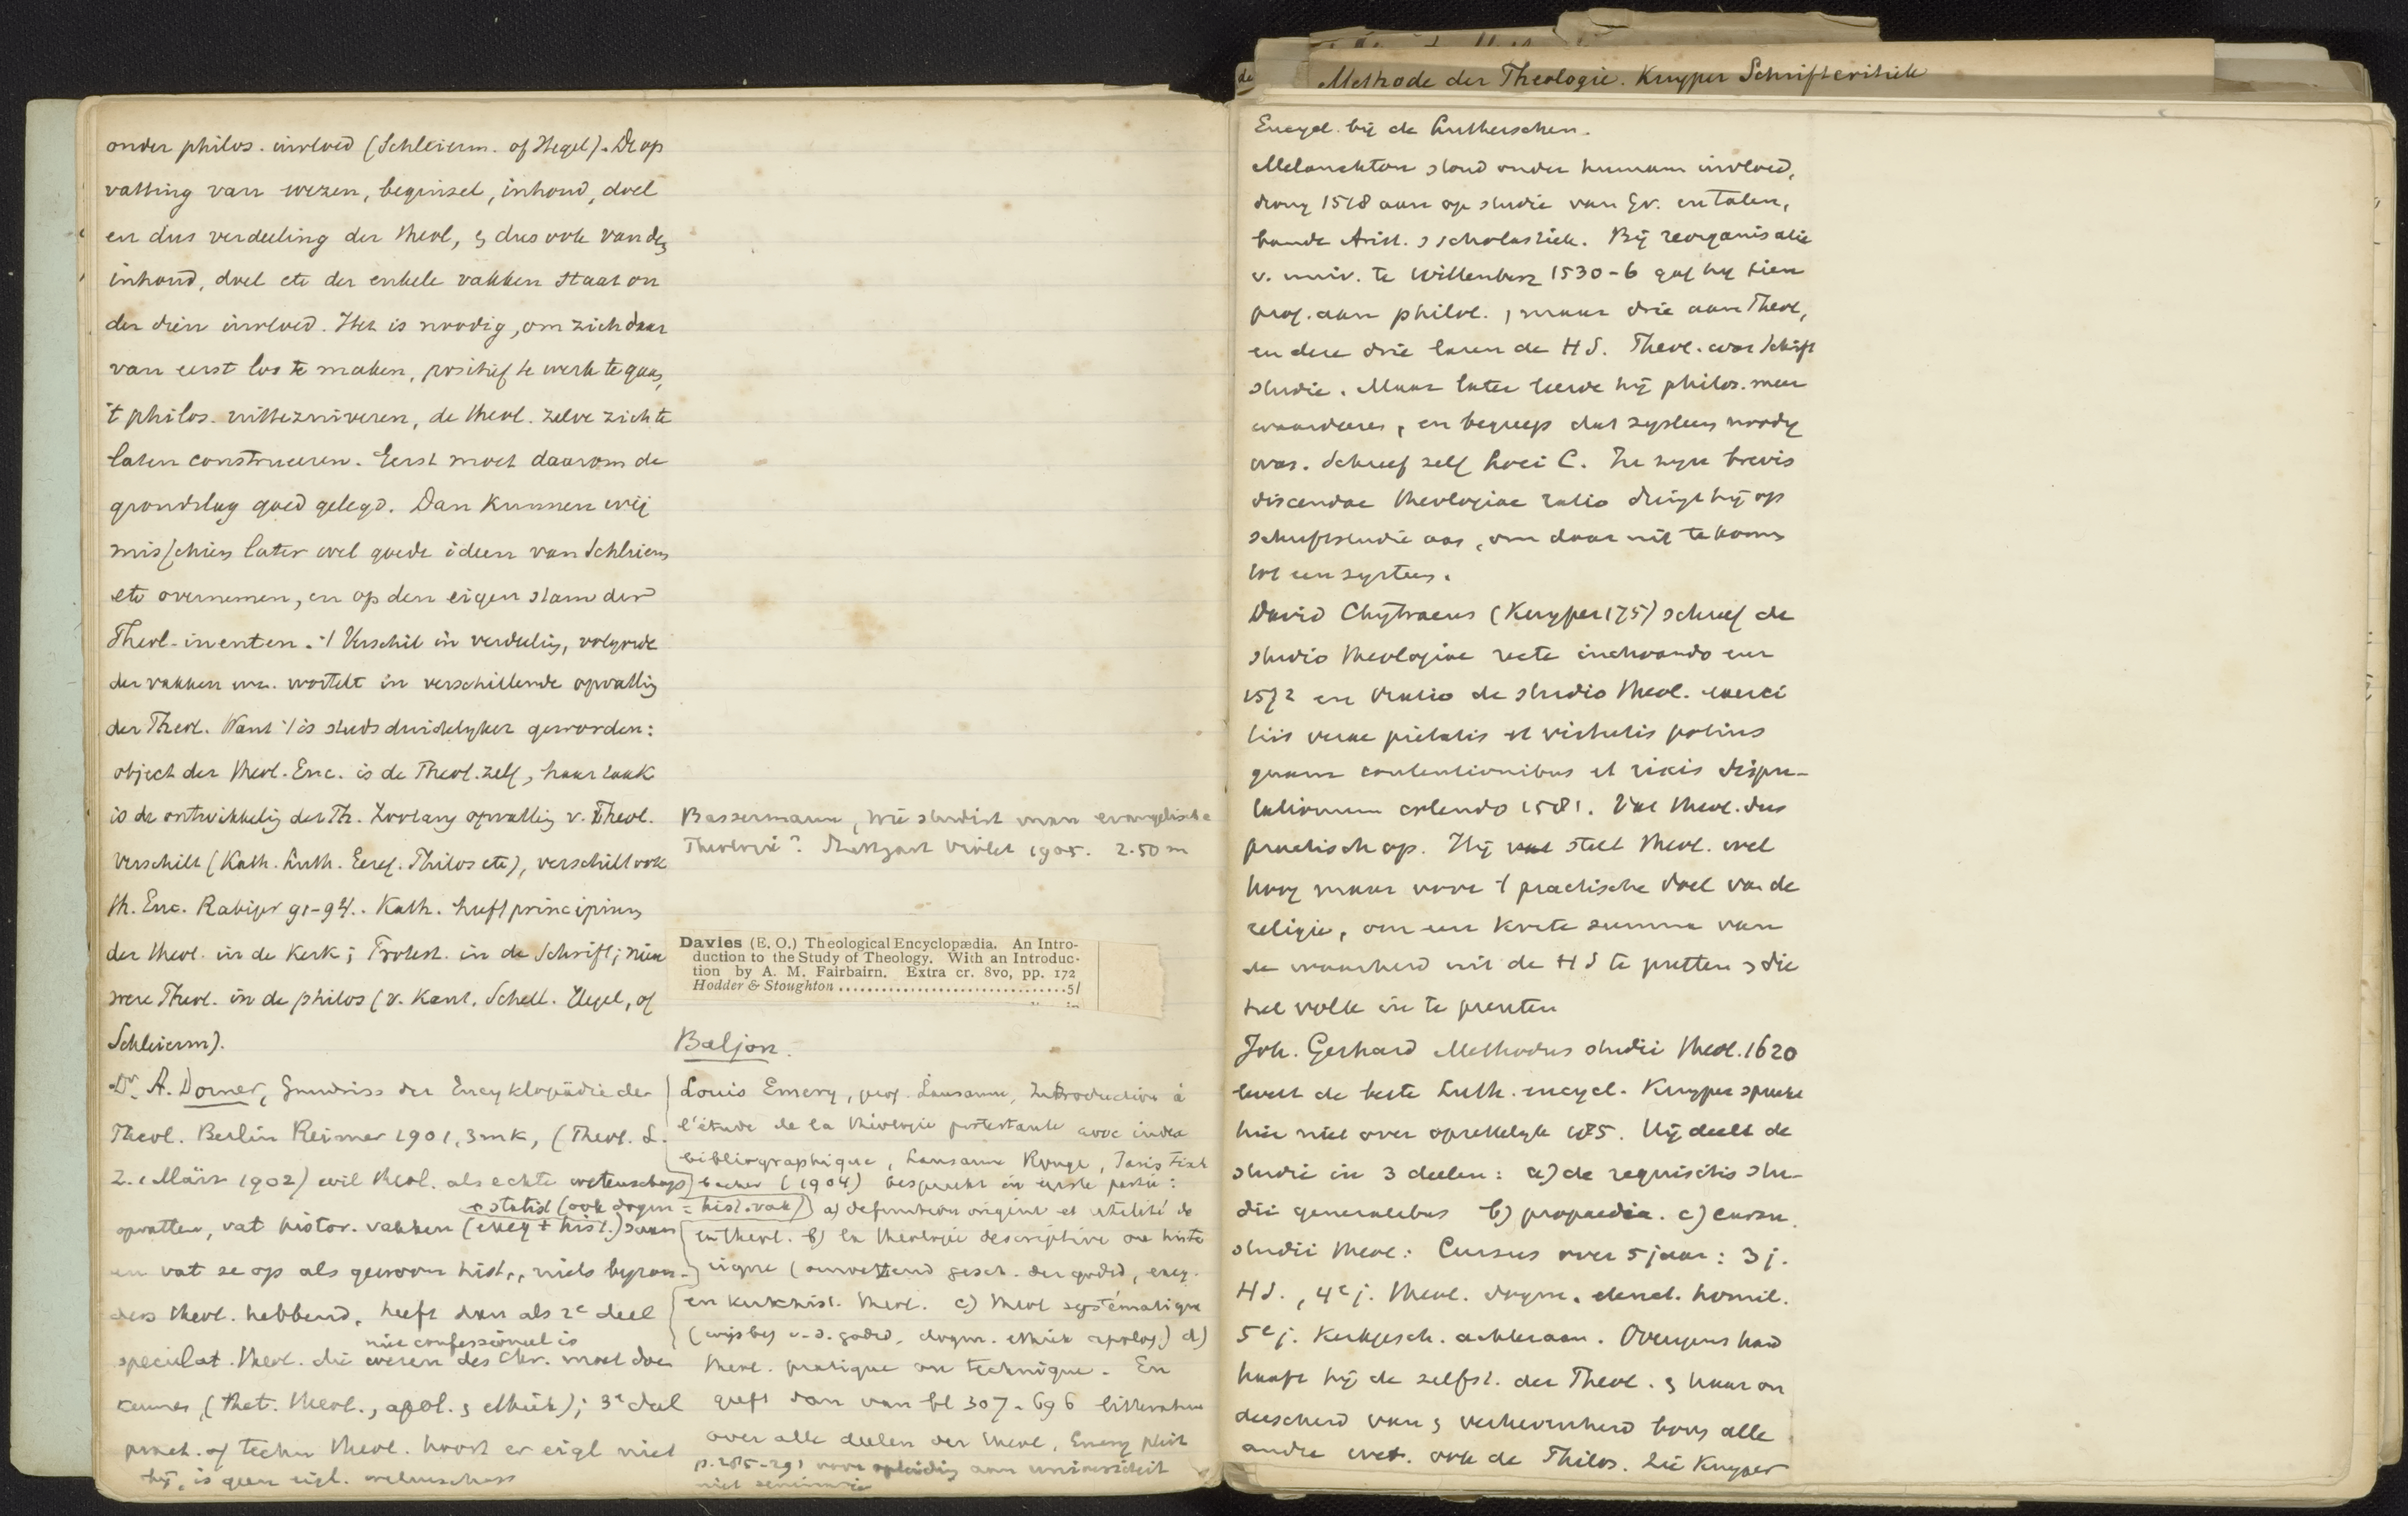 onder philos. invloed (Schleierm. of Hegel). De op
vatting van wezen, beginsel, inhoud, doel
en dus verdeeling der theol, & dus ook van de
inhoud, doel etc der enkele vakken staat on
der dien invloed. Het is noodig, om zich daar
van eerst los te maken, positief te werk te gaan,
't philos. uittezuiveren, de theol. zelve zich te
laten construeeren. Eerst moet daarom de
grondslag goed gelegd. Dan kunnen wij
misschien later wel goede ideen van Schleierm
etc overnemen, en op den eigen stam der
Theol-inenten. Verschil in verdeeling, volgorde
der vakken enz. wortelt in verschillende opvatting
der Theol. Want 't is steeds duidelyker geworden:
object der theol. Enc. is de Theol. zelf, haar taak
is de ontwikkeling der Th. Zoolang opvatting v. Theol.
verschilt (Kath. Luth. Geref. Philos etc), verschilt ook
th. Enc. Rabiger 91-94. Kath. heeft principium
der theol. in de Kerk; Protest. in de Schrift; nieu
were Theol. in de philos (v. Kant. Schell. Hegel, of
Schleierm).
Dr. A. Dorner, Grundriss der Encyklopädie der
Theol. Berlin Reimer 1901, 3 mk, (Theol. L.
Z. 1 März 1902) wil theol. als echte wetenschap
+ statist (ook dogm = hist. vak)
opvatten, vat histor. vakken (exeg + hist.) saam
en vat ze op als gewoon hist., niets byzon-
ders theol. hebbend, heeft dan als 2e deel
niet confessioneel is
speculat. theol. die wezen des Chr. moet doen
kennen (thet. theol., apol. & ethiek); 3e deel
pract. of techn theol. hoort er eigl niet
bij, is geen eigl. wetenschap
Bassermann, Wie studirt man evangelische
Theologie? Stuttgart Violet 1905. 2.50 m
Davies (E. O.) Theological Encyclopædia. An Intro-
duction to the Study of Theology. With an Introduc-
tion by A. M. Fairbairn. Extra cr. 8vo, pp. 172
Hodder & Stoughton ................................5/
Baljon.
Louis Emery, prof. Lausanne, Introduction à
l'étude de la théologie protestante avec index
bibliographique, Lausanne Rouge, Paris Fisch
bacher (1904) bespreekt in eerste partie:
a) definition origine et utilité de
en theol. b) la théologie descriptive ou histo
rique (omvattend gesch. der godsd, exeg.
en kerkhist. theol. c) theol systématique
(wijsbeg v. d. godsd. dogm. ethiek apolog.) d)
theol. pratique ou technique. En
geeft dan van bl 307-696 litteratuur
over alle deelen der theol, Emery pleit
p. 285-291 voor opleiding aan universiteit
niet seminarie
Methode der Theologie. Kuyper Schriftcritiek
Encycl. bij de Lutherschen.
Melanchton stond onder humam invloed,
drong 1518 aan op studie van Gr. en Talen,
bande Arist. & scholastiek. Bij reorganisatie
v. univ. te Wittenberg 1530-6 gaf hij tien
prof. aan philol., maar drie aan Theol,
en deze drie lazen de H S. Theol. was Schrift
studie. Maar later leerde hij philos. meer
waardeeren, en begreep dat systeem noodig
was. Schreef zelf Loci C. In zyn brevis
discendae theologiae ratio dringt hij op
schriftstudie aan, om daar uit te komen
tot een systeem.
David Chytraeus (Kuyper 175) schreef de
studio theologiae recte inchoando eer
1572 en Oratio de studio theol. exerci
tiis verae pietatis et virtutis potius
quam contentionibus et rixis dispu-
tationum colendo 1581. Vat theol. dus
practisch op. Hij stelt theol. wel
hoog maar voor 't practische doel van de
religie, om een korte summa van
de waarheid uit de H S te putten & die
het volk in te prenten
Joh. Gerhard Methodus studii theol. 1620
levert de beste Luth. encycl. Kuyper spreekt
hier niet over opzettelyk 185. Hij deelt de
studie in 3 deelen: a) de requisitis stu-
dii generalibus b) propaedia. c) cursu.
studii theol: Cursus over 5 jaar: 3 j.
H S., 4e j. theol. dogm. elenct. homil.
5e j. Kerkgesch. achteraan. Overigens hand
haaft hij de zelfst. der Theol. & haar on
derscheid van & verhevenheid boven alle
andre wet. ook de Philos. Zie Kuyper